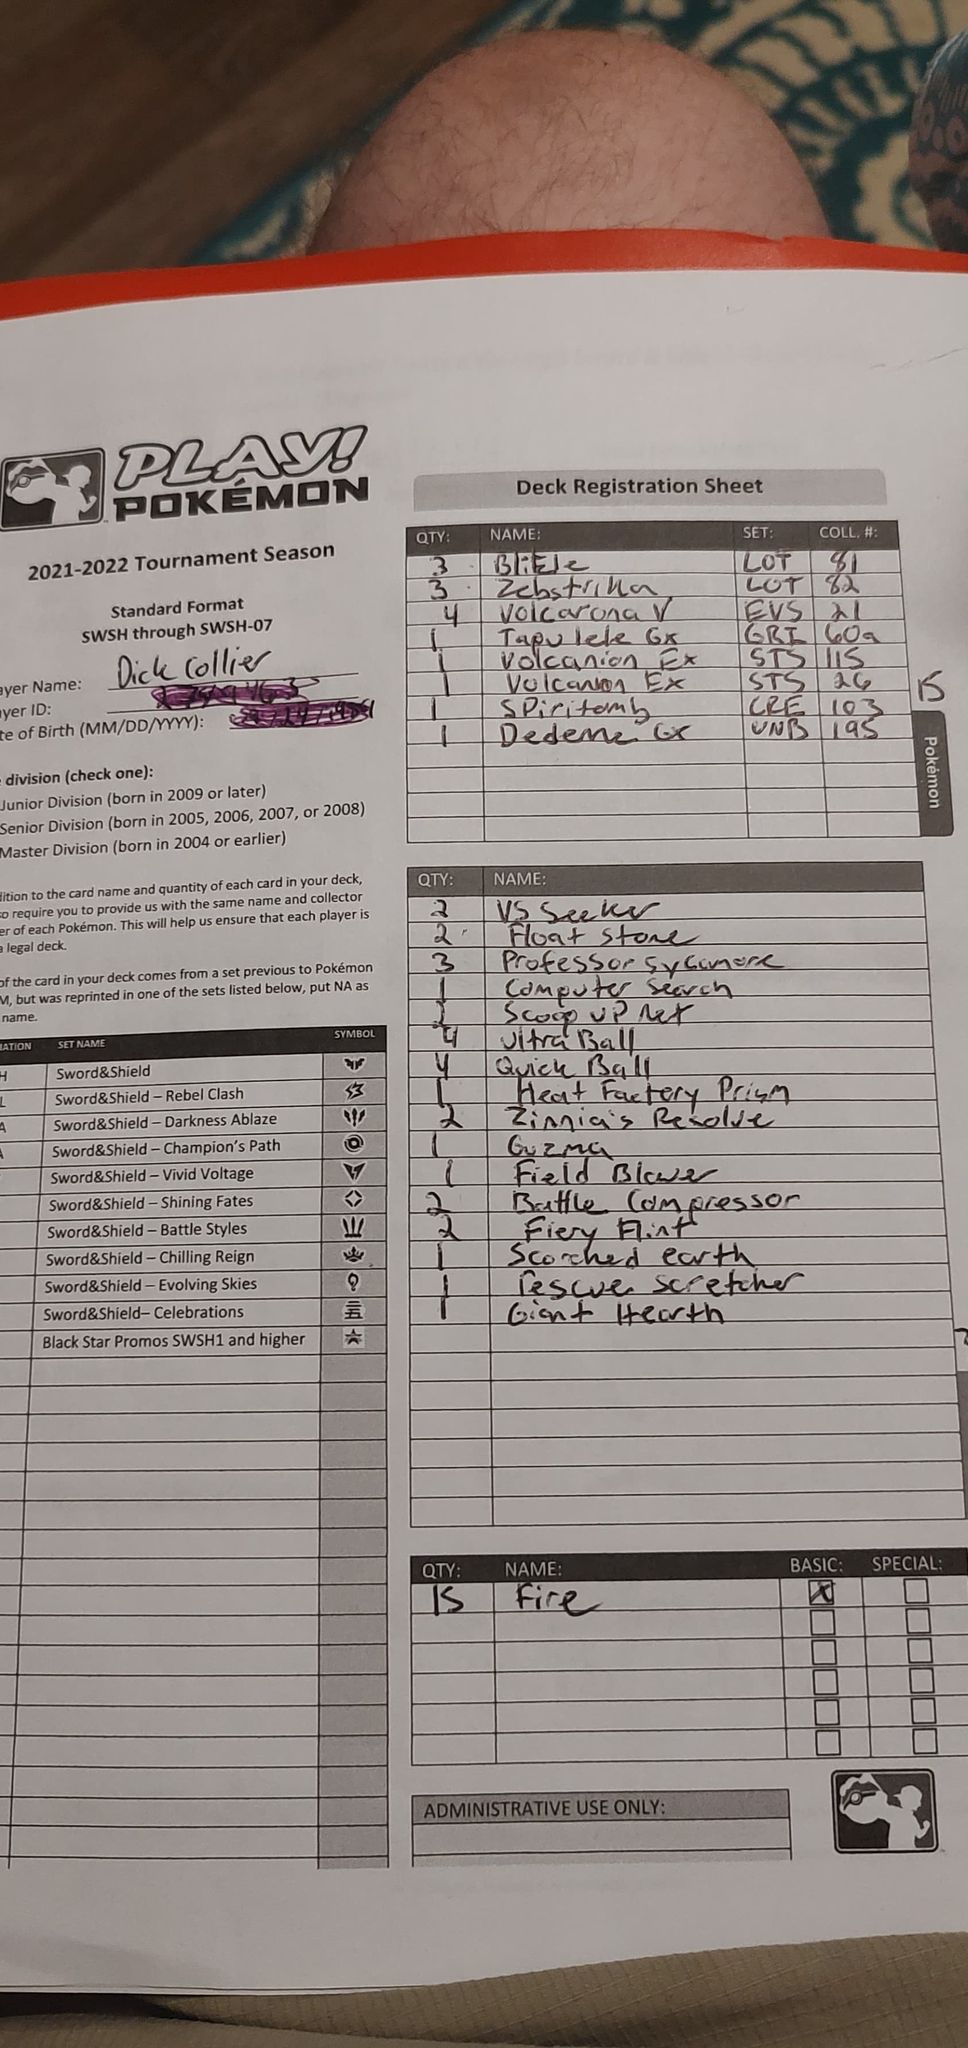 PLAY!
POKÉMON
2021-2022 Tournament Season
Standard Format
SWSH through SWSH-07
ayer Name: Dick Collier
yer ID:
te of Birth (MM/DD/YYYY):
division (check one):
Junior Division (born in 2009 or later)
Senior Division (born in 2005, 2006, 2007, or 2008)
Master Division (born in 2004 or earlier)
lition to the card name and quantity of each card in your deck,
o require you to provide us with the same name and collector
er of each Pokémon. This will help us ensure that each player is
legal deck.
of the card in your deck comes from a set previous to Pokémon
M, but was reprinted in one of the sets listed below, put NA as
name.
IATION SET NAME SYMBOL
H Sword&Shield
L Sword&Shield – Rebel Clash
A Sword&Shield – Darkness Ablaze
A Sword&Shield – Champion's Path
Sword&Shield – Vivid Voltage
Sword&Shield – Shining Fates
Sword&Shield – Battle Styles
Sword&Shield – Chilling Reign
Sword&Shield – Evolving Skies
Sword&Shield– Celebrations
Black Star Promos SWSH1 and higher
Deck Registration Sheet
QTY: NAME: SET: COLL. #:
3 Blitzle LOT 81
3 Zebstrika LOT 82
4 Volcarona V EVS 21
1 Tapu lele Gx GRI 60a
1 Volcanion Ex STS 115
1 Volcanion Ex STS 26
1 SPiritomb CRE 103
1 Dedenne Gx UNB 195
15
Pokémon
QTY: NAME:
2 VS Seeker
2 Float Stone
3 Professor Sycamore
1 Computer Search
Scoop UP Net
4 Ultra Ball
4 Quick Ball
1 Heat Factory Prism
2 Zinnia's Resolve
1 Guzma
1 Field Blower
2 Battle Compressor
2 Fiery Flint
1 Scorched earth
1 rescue stretcher
1 Giant Hearth
QTY: NAME: BASIC: SPECIAL:
15 Fire X
ADMINISTRATIVE USE ONLY: